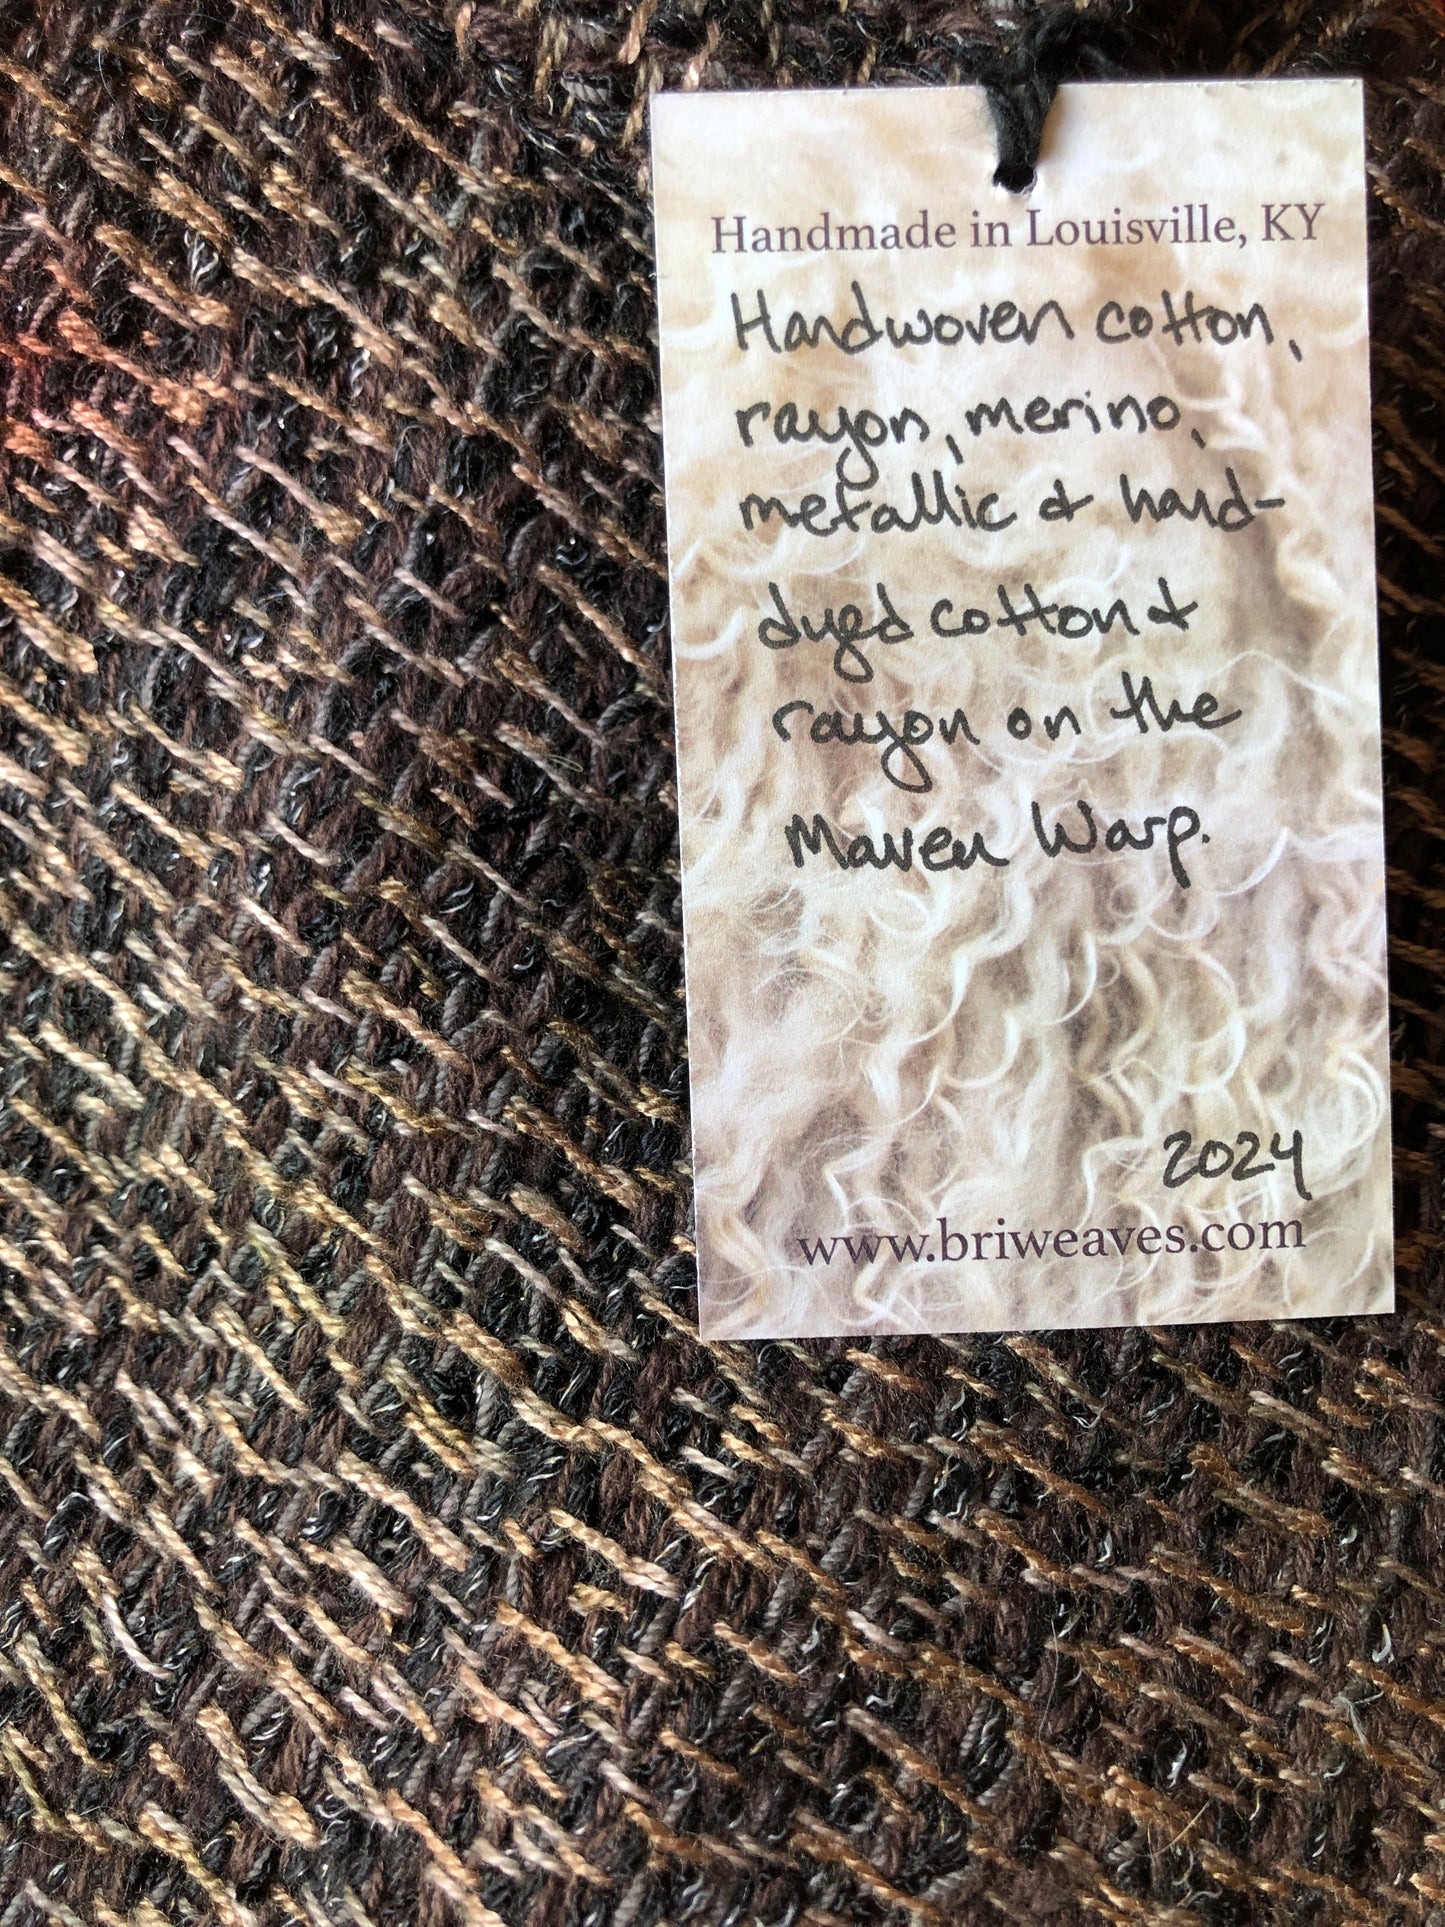 Handmade in Louisville, KY
Handwoven cotton,
rayon, merino,
metallic & hand-
dyed cotton &
rayon on the
Maven Warp.
2024
www.briweaves.com